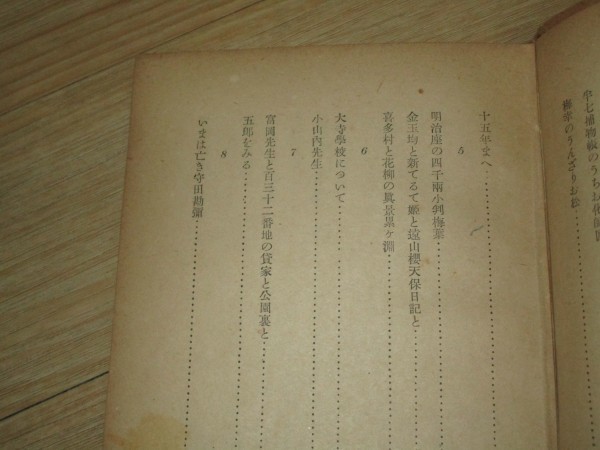 半七捕物帳のうちお化師匠
蝙蝠のうんざりお松
十五年まへ
5
明治座の四千兩小判梅葉
金玉均と新てるて姬と遠山櫻天保日記と
喜多村と花柳の眞景累ヶ淵
6
大寺學校について
小山內先生
7
富岡先生と百三十二番地の貸家と公園裏と
五郞をみる
8
いまは亡き守田勘彌